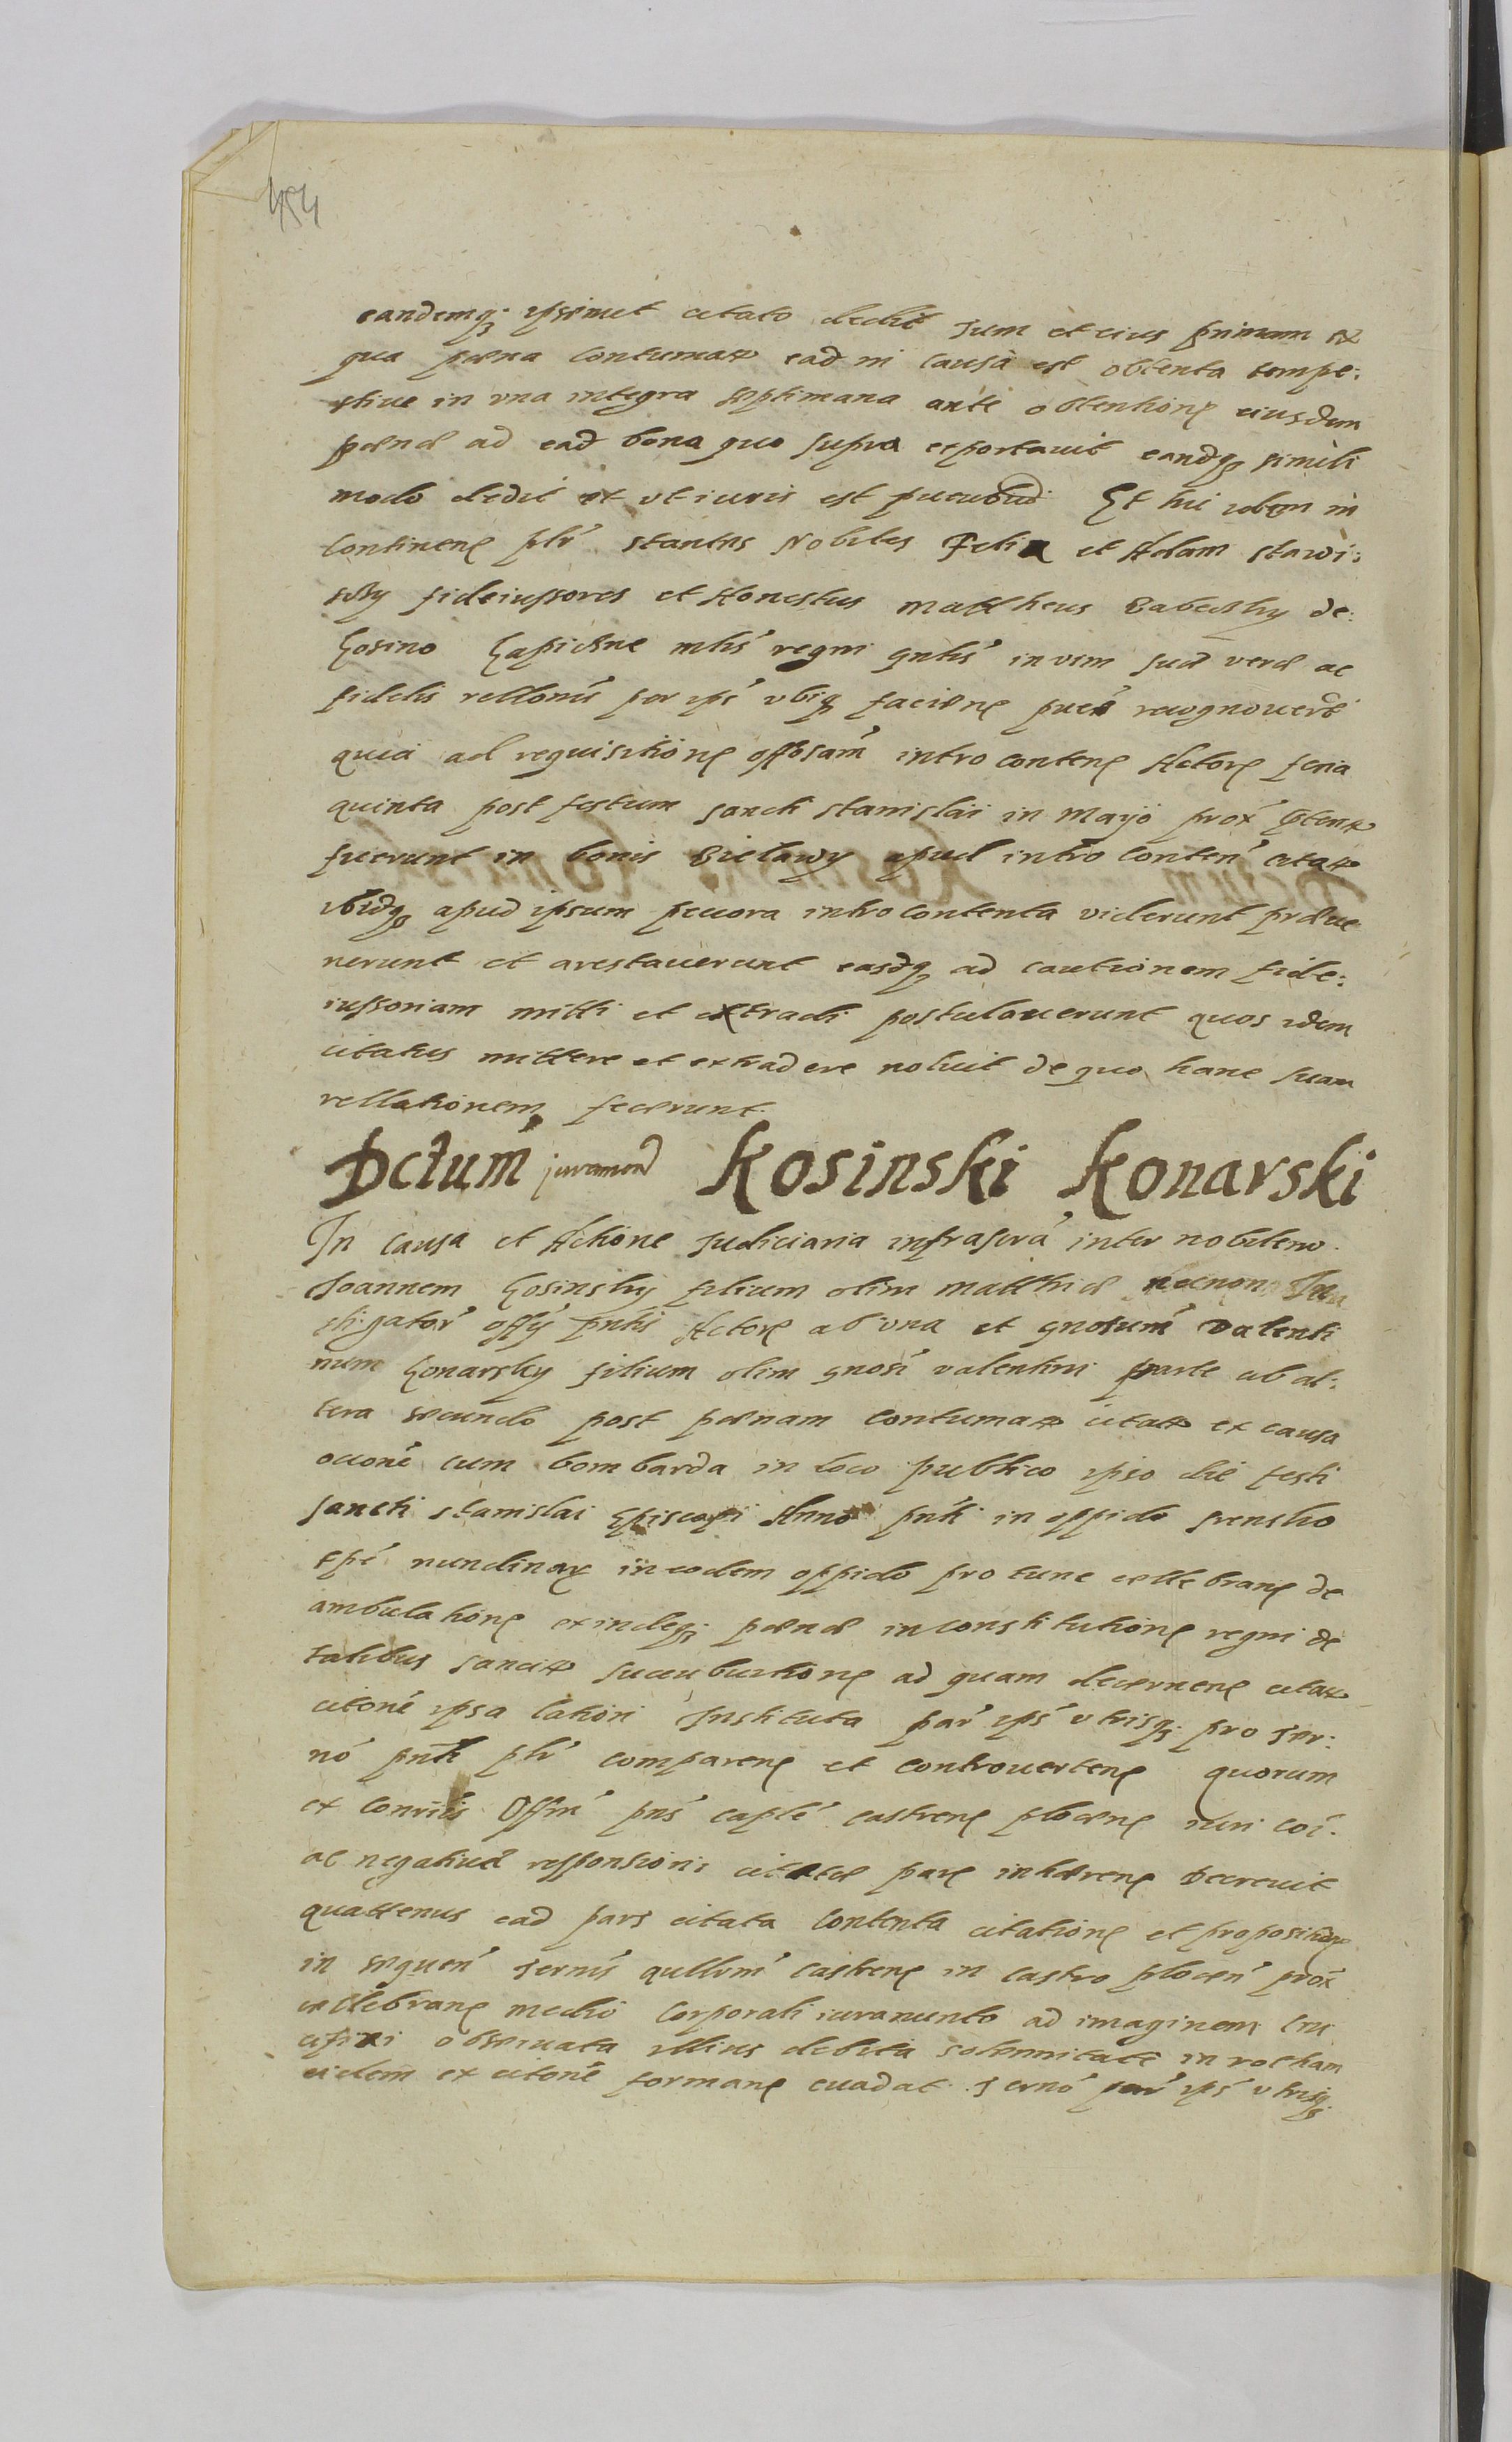 454
eandemq; ipsimet citato dedit Tum et eius primam ex
qua pœna Contumax ead in Causa est obtenta tempe:
stiue in vna integra septimana ante obtentione eiusdem
pœnæ ad ead bona quo supra exportauit eandq simili
modo dedit et vt iuris est Et hii ibidem in
Continen plr stantes Nobiles Felix et Adam stawi:
sky fideiussores et Honestus Mattheus Babecky de:
Kosino Kapicine mlis regni gnlis in vim suæ veræ ac
fidelis rellonis per ips vbiq faciene recognouerut
quia ad requisitione introconten Actore feria
quinta post festum sancti Stanislai in Mayo prox
fuerunt in bonis Bielawy apud introconten citat
ibidq apud ipsum pecora introcontenta viderunt præue
nerunt et arestauerunt easdq ad cautionem fide:
iussoriam mitti et extradi postulauerunt quos idem
citatus mittere et extradere noluit de quo hanc suam
rellationem fecerunt.
Dctum juramen Kosinski Konarski
In causa et Actione Judiciaria infrascra inter nobilem
Joannem Kosinsky filium olim Matthiæ necnon In
stigator offy pntis Actore ab vna et gnosum Valenti
num Konarsky filium olim gnosi Valentini parte ab al:
tera secundo post pœnam Contumax citat ex causa
cum bombarda in loco publico ipso die festi
sancti Stanislai Episcopi Anno pnti in oppido
tpe nundinar in eodem oppido pro tunc cellebran de
ambulatione exindeq; pœnæ in Constitutione regni de
talibus sancit succubitione ad quam decernene citat
citone ipsa lation Instituta par ips vtrisq; pro ter:
no pnti plr comparen et controuerten quorum
ex conuis Offm pns caple castren plocen iuri coi.
ac negatiuæ responsioni citatæ pars inhæren Decreuit
quattenus ead pars citata contenta citatione et
in sequen ternis qullum castren in castro plocen prox
cellebran medio Corporali iuramento ad imaginem Cru
cifixi obseruata illius debita solennitate in rotham
eidem ex citone forman euadat. Terno par ips vtrisq;